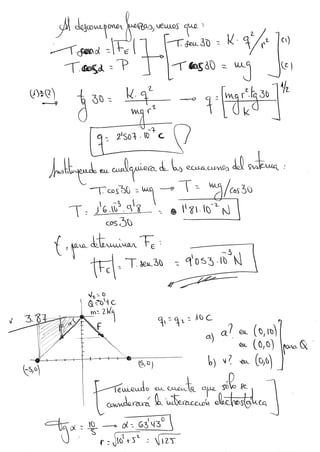 Al descomponer fuerzas, vemos que:
T.senα = |FE|
T.cosα = P
T.sen30 = K·q²/r² (1)
T cos30 = mg (2)
(1)÷(2) → tg 30 = K·q²/mgr² → q = [mgr²·tg30/K]^1/2
q = 2'507·10⁻⁷ C
Sustituyendo en cualquiera de las ecuaciones del sistema:
T·cos30 = mg → T = mg/cos30
T = 1'6·10⁻³·9'8/cos30 = 1'81·10⁻² N
Y, para determinar FE:
|FE| = T.sen30 = 9'053·10⁻³ N
V₀=0
Q=0'4C
m=2Kg
3.87
F
α
(-5,0)
(5,0)
q₁=q₂=10C
a) a? en (0,10)
en (0,0)
b) v? en (0,0)
para Q
[Teniendo en cuenta que sólo se
considerará la interacción electrostática]
tgα = 10/5 → α = 63'43°
r = √10²+5² = √125